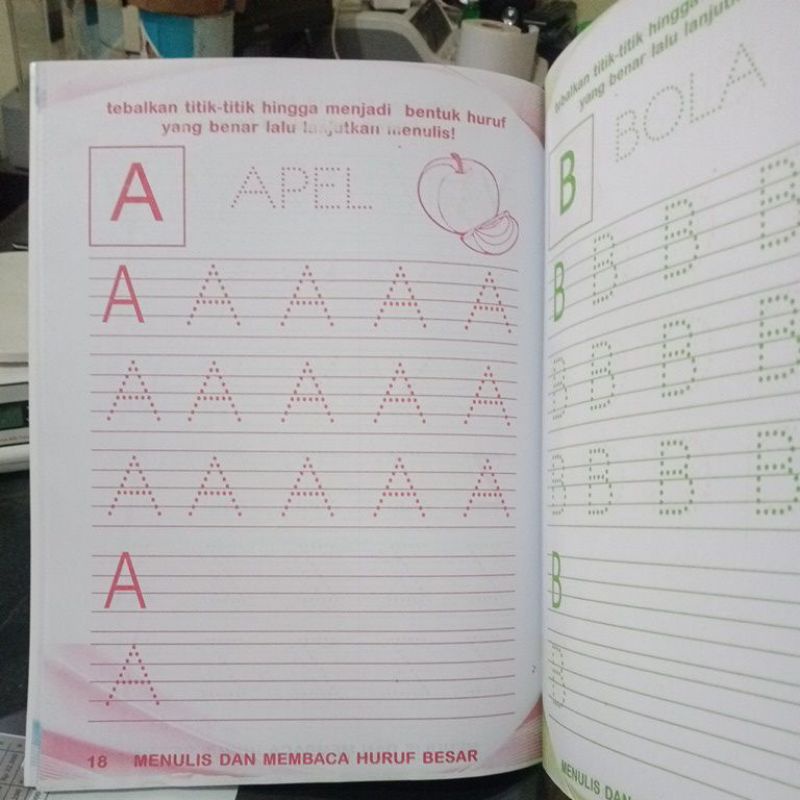 tebalkan titik-titik hingga menjadi bentuk huruf
yang benar lalu lanjutkan menulis!
A APEL
A A A A A
A A A A A
A A A A A
A
A
18 MENULIS DAN MEMBACA HURUF BESAR
tebalkan titik-titik hingga
yang benar lalu
B BOLA
B B B B
B B B B
B B B B
B
B
MENULIS DAN